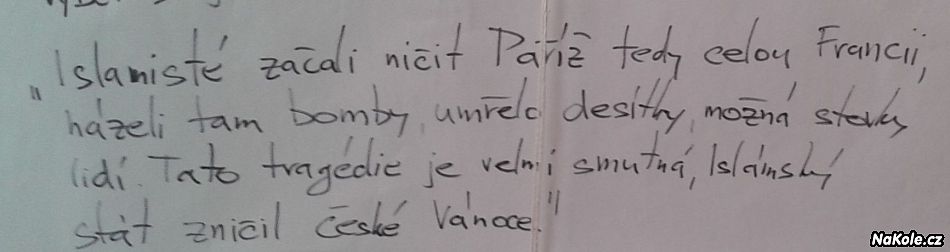 „Islamisté začali ničit Paříž tedy celou Francii,
házeli tam bomby, umřelo desítky, možná stovky
lidí. Tato tragédie je velmi smutná, Islámský
stát zničil české Vánoce."
NaKole.cz